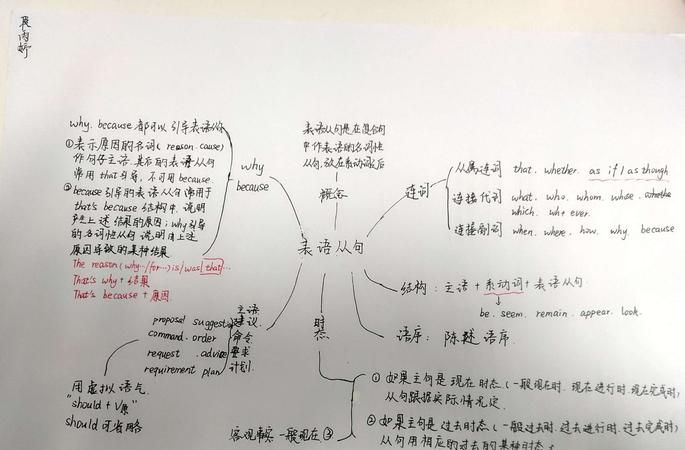 why. because 都可以引导表语从
①表示原因的名词(reason.cause)
作句子主语.其后的表语从句
常用that引导,不可用because.
②because引导的表语从句常用于
that's because结构中.说明
上述结果的原因;why引导
的名词性从句说明由上述
原因导致的某种结果.
The reason(why…/for…)is/was that…
That's why + 结果
That's because + 原因.
why
because
表语从句是在复合句
中作表语的名词性
从句,放在系动词后
概念
表语从句
连词
从属连词 that. whether. as if / as though
连接代词 what. who. whom. whose.
which. wh+ ever.
连接副词 when. where. how. why because
结构: 主语 + 系动词 + 表语从句.
be. seem. remain. appear. look.
语序: 陈述语序.
时态
①如果主句是现在时态(一般现在时.现在进行时.现在完成时)
从句根据实际情况定.
②如果主句是过去时态(一般过去时.过去进行时.过去完成时)
从句用相应的过去的某种时态
客观事实 一般现在③
主语
proposal suggest 建议.
command. order 命令
request. advice 要求
requirement plan 计划.
用虚拟语气
"should + V原"
should可省略